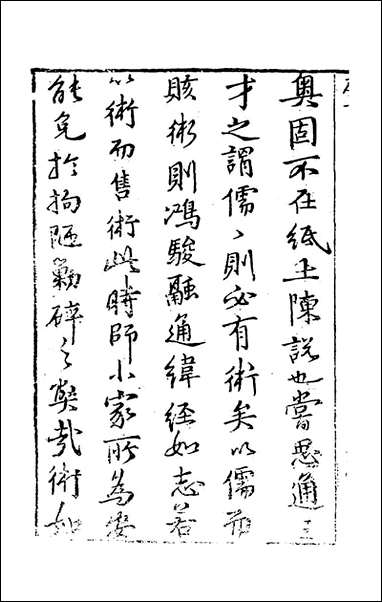 奥固不在紙上陳說也嘗思通三
才之謂儒〻則必有術矣以儒而
賅術則鴻駿融通緯經如志若
以術而售術此時師小家所為安
能免於拘陋剿碎之獘哉術如